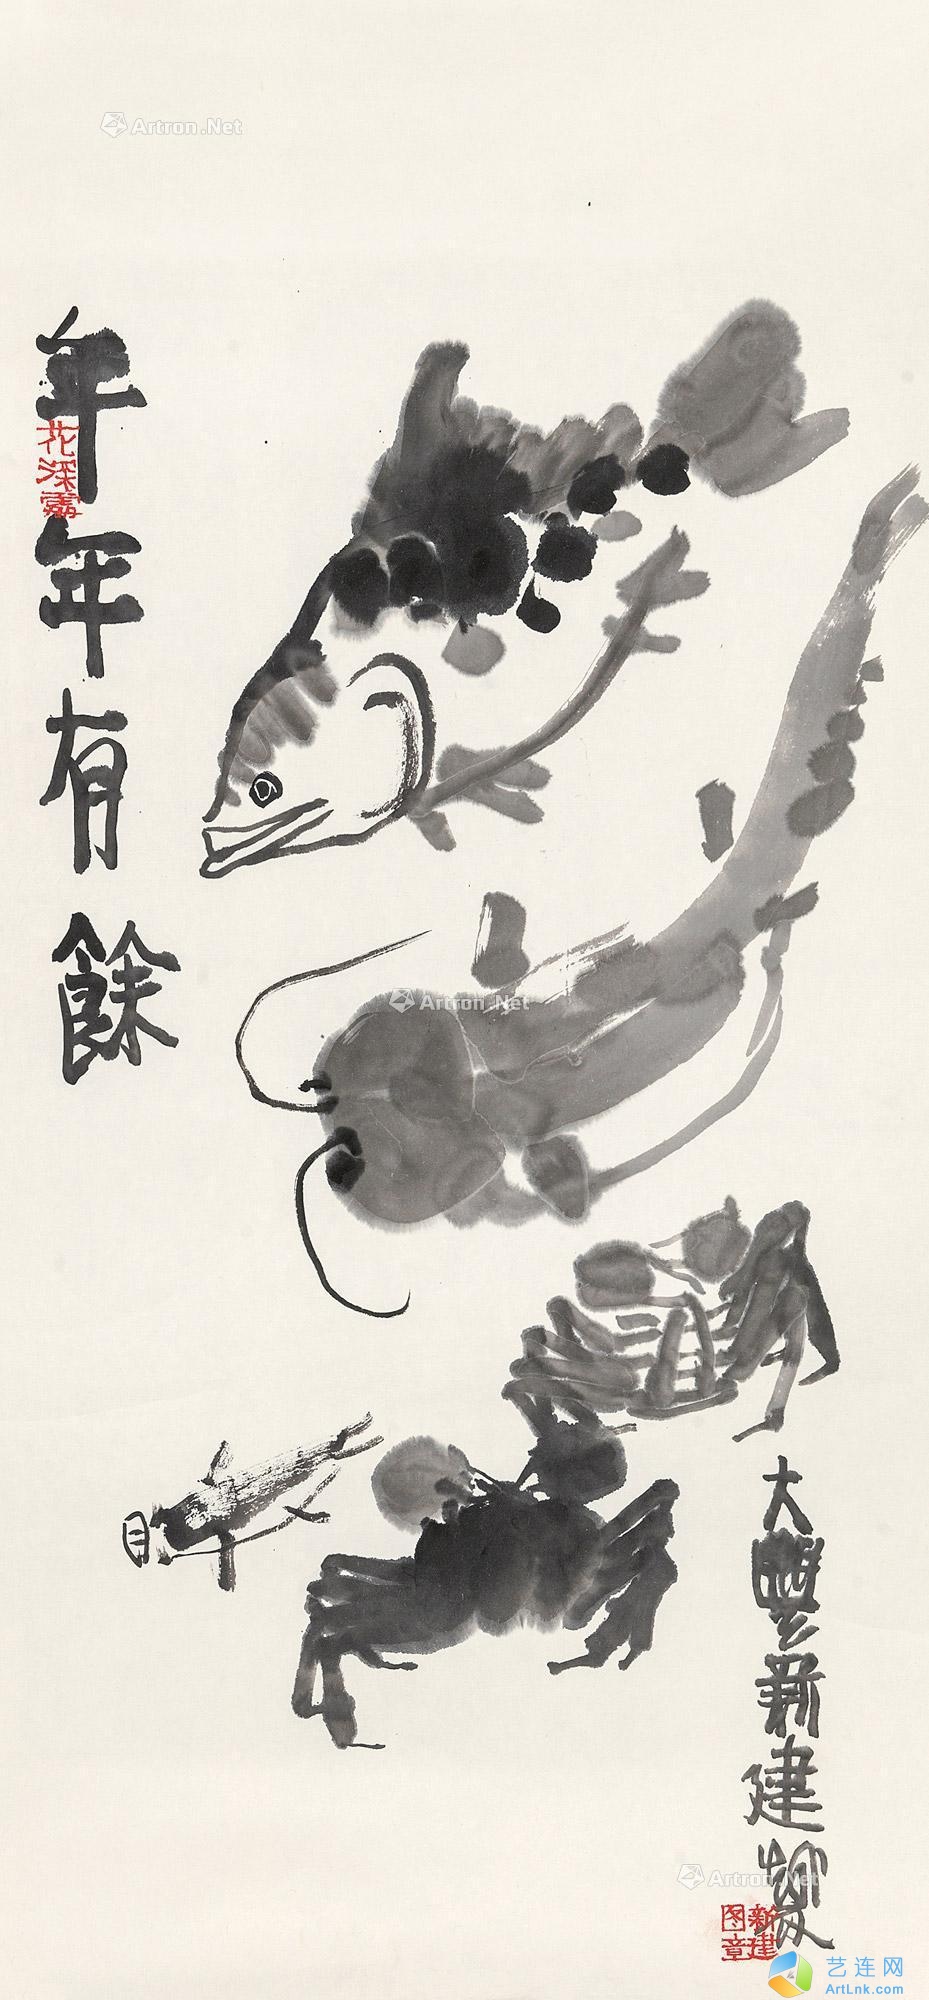 Artron.Net
年年有餘
花深露
Artron.Net
大豐新建
Artron.Net
新建
图章
艺连网
ArtLnk.com